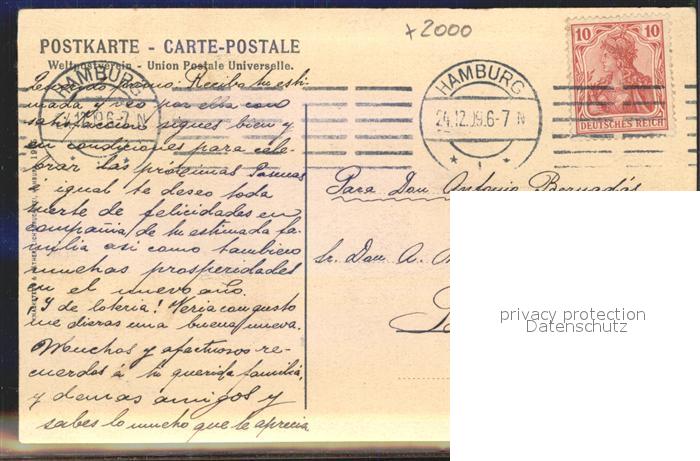 +2000
POSTKARTE - CARTE-POSTALE
Weltpostverein - Union Postale Universelle.
HAMBURG
24.12.09.6-7 N
1
HAMBURG
24.12.09.6-7 N
* 1 *
10 10
DEUTSCHES REICH
Querido primo: Recibo tu esti-
mada y veo por ella con
satisfaccion sigues bien y
en condiciones para cele-
brar las próximas Pascuas
é igual te deseo toda
suerte de felicidades en
compañia de tu estimada fa-
milia asi como tambien
muchas prosperidades
en el nuevo año.
¡Y de loteria! Veria con gusto
me dieras una buena nueva.
Muchos y afectuosos re-
cuerdos á tu querida familia,
y demas amigos y
sabes lo mucho que te aprecia
Para Don Antonio Bernadás
Sr. Don A.
privacy protection
Datenschutz